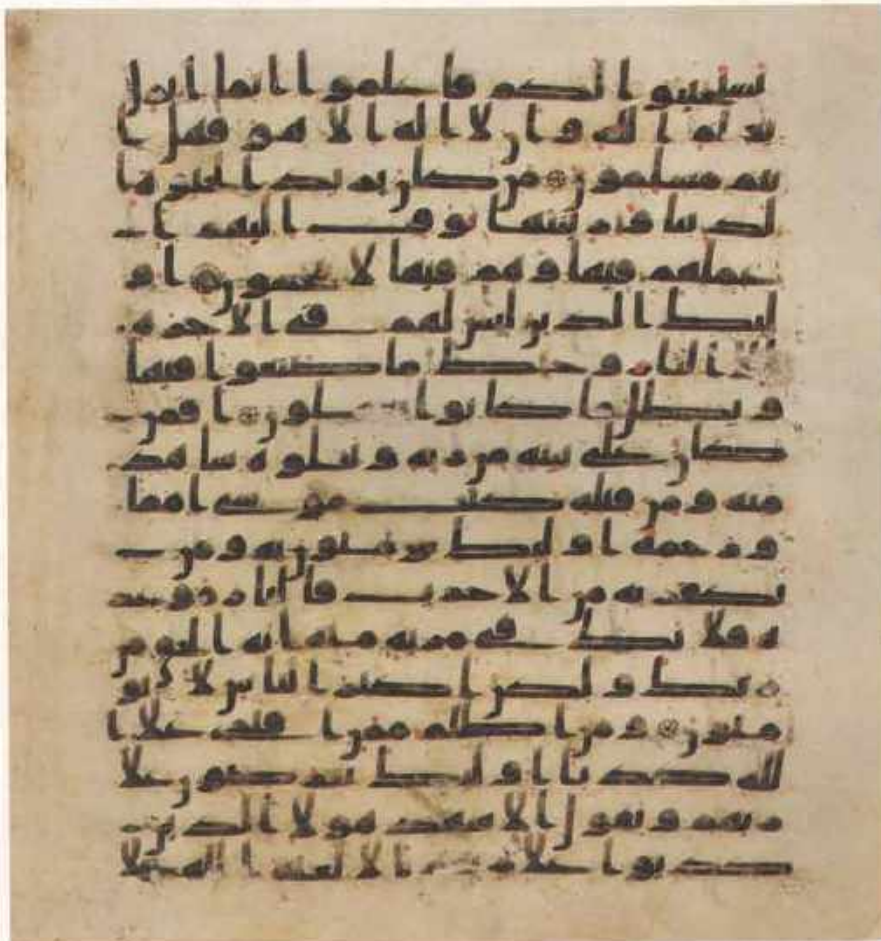 يستجيبوا لكم فاعلموا انما انزل
بعلم الله وان لا اله الا هو فهل ا
نتم مسلمون من كان يريد الحيوة ا
لدنيا وزينتها نوف اليهم ا
عملهم فيها وهم فيها لا يبخسون او
ليك الذين ليس لهم في الاخرة
الا النار وحبط ما صنعوا فيها
وبطل ما كانوا يعملون افمن
كان على بينة من ربه ويتلوه شاهد
منه ومن قبله كتب موسى اماما
ورحمة اوليك يومنون به ومن
يكفر به من الاحزب فالنار موعد
ه فلا تك في مرية منه انه الحق من
ربك ولكن اكثر الناس لا يو
منون ومن اظلم ممن افترى على ا
لله كذبا اوليك يعرضون على
ربهم ويقول الاشهد هولا الذين
كذبوا على ربهم الا لعنة الله على